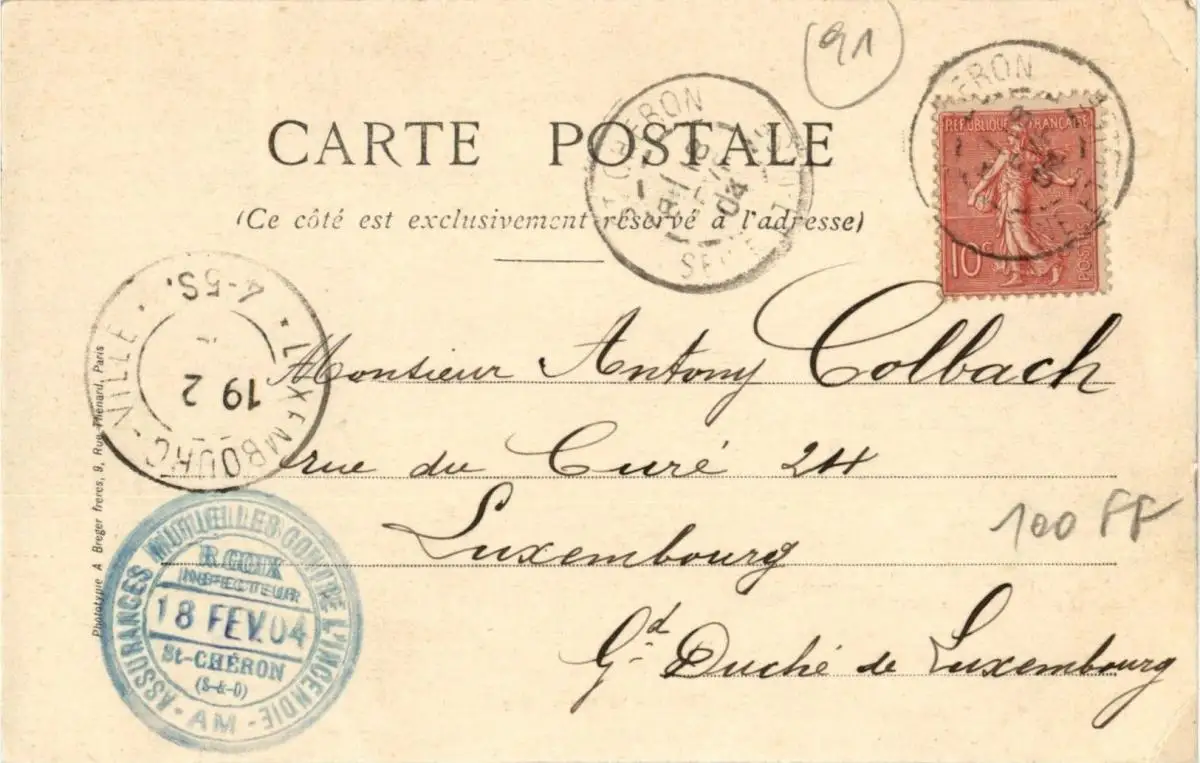 91
CARTE POSTALE
(Ce côté est exclusivement réservé à l'adresse)
ST CHERON
18 FEVR 04
SEINE-ET-OISE
REPUBLIQUE FRANÇAISE
10c
POSTES
LUXEMBOURG-VILLE
4-5S.
19 2
Monsieur Antony Colbach
rue du Curé 24
Luxembourg
Gd Duché de Luxembourg
100 FF
Phototypie A Breger freres, 9, Rue Thénard, Paris
ASSURANCES MUTUELLES CONTRE L'INCENDIE
INSPECTEUR
18 FEV. 04
St-CHÉRON
(S-&-O)
- AM -